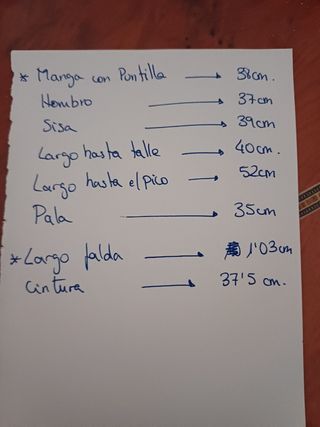 * Manga con Puntilla → 38cm.
Hombro → 37cm
Sisa → 39cm
Largo hasta talle → 40cm.
Largo hasta el pico → 52cm
Pala → 35cm
* Largo falda → 1'03cm
Cintura → 37'5 cm.